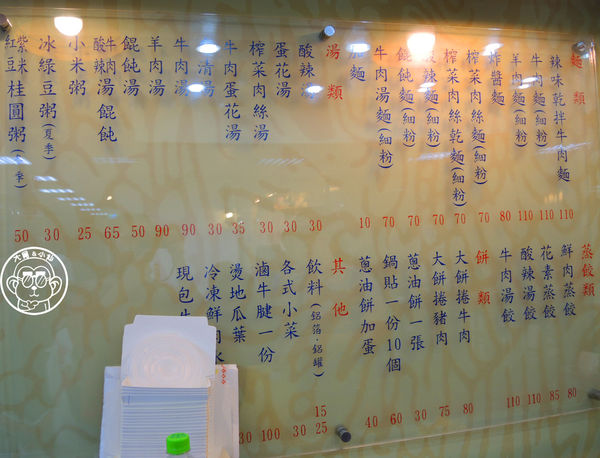 麵類
辣味乾拌牛肉麵 110
牛肉麵(細粉) 110
羊肉麵(細粉) 110
炸醬麵 80
榨菜肉絲麵(細粉) 70
榨菜肉絲乾麵(細粉) 70
酸辣麵(細粉) 70
餛飩麵(細粉) 70
牛肉湯麵(細粉) 70
加麵 10
湯類
酸辣湯 30
蛋花湯 30
榨菜肉絲湯 30
牛肉蛋花湯 35
清湯 30
牛肉湯 90
羊肉湯 90
餛飩湯 50
酸辣牛肉湯餛飩 65
小米粥 25
冰綠豆粥(夏季) 30
紅豆紫米桂圓粥(冬季) 50
蒸餃類
鮮肉蒸餃 80
花素蒸餃 85
酸辣湯餃 110
牛肉湯餃 110
餅類
大餅捲牛肉 80
大餅捲豬肉 75
蔥油餅一張 30
鍋貼一份10個 60
蔥油餅加蛋 40
其他
飲料(鋁箔·鋁罐) 15 25
各式小菜 30
滷牛腱一份 100
燙地瓜葉 30
冷凍鮮肉水
現包牛
大圓&小貼